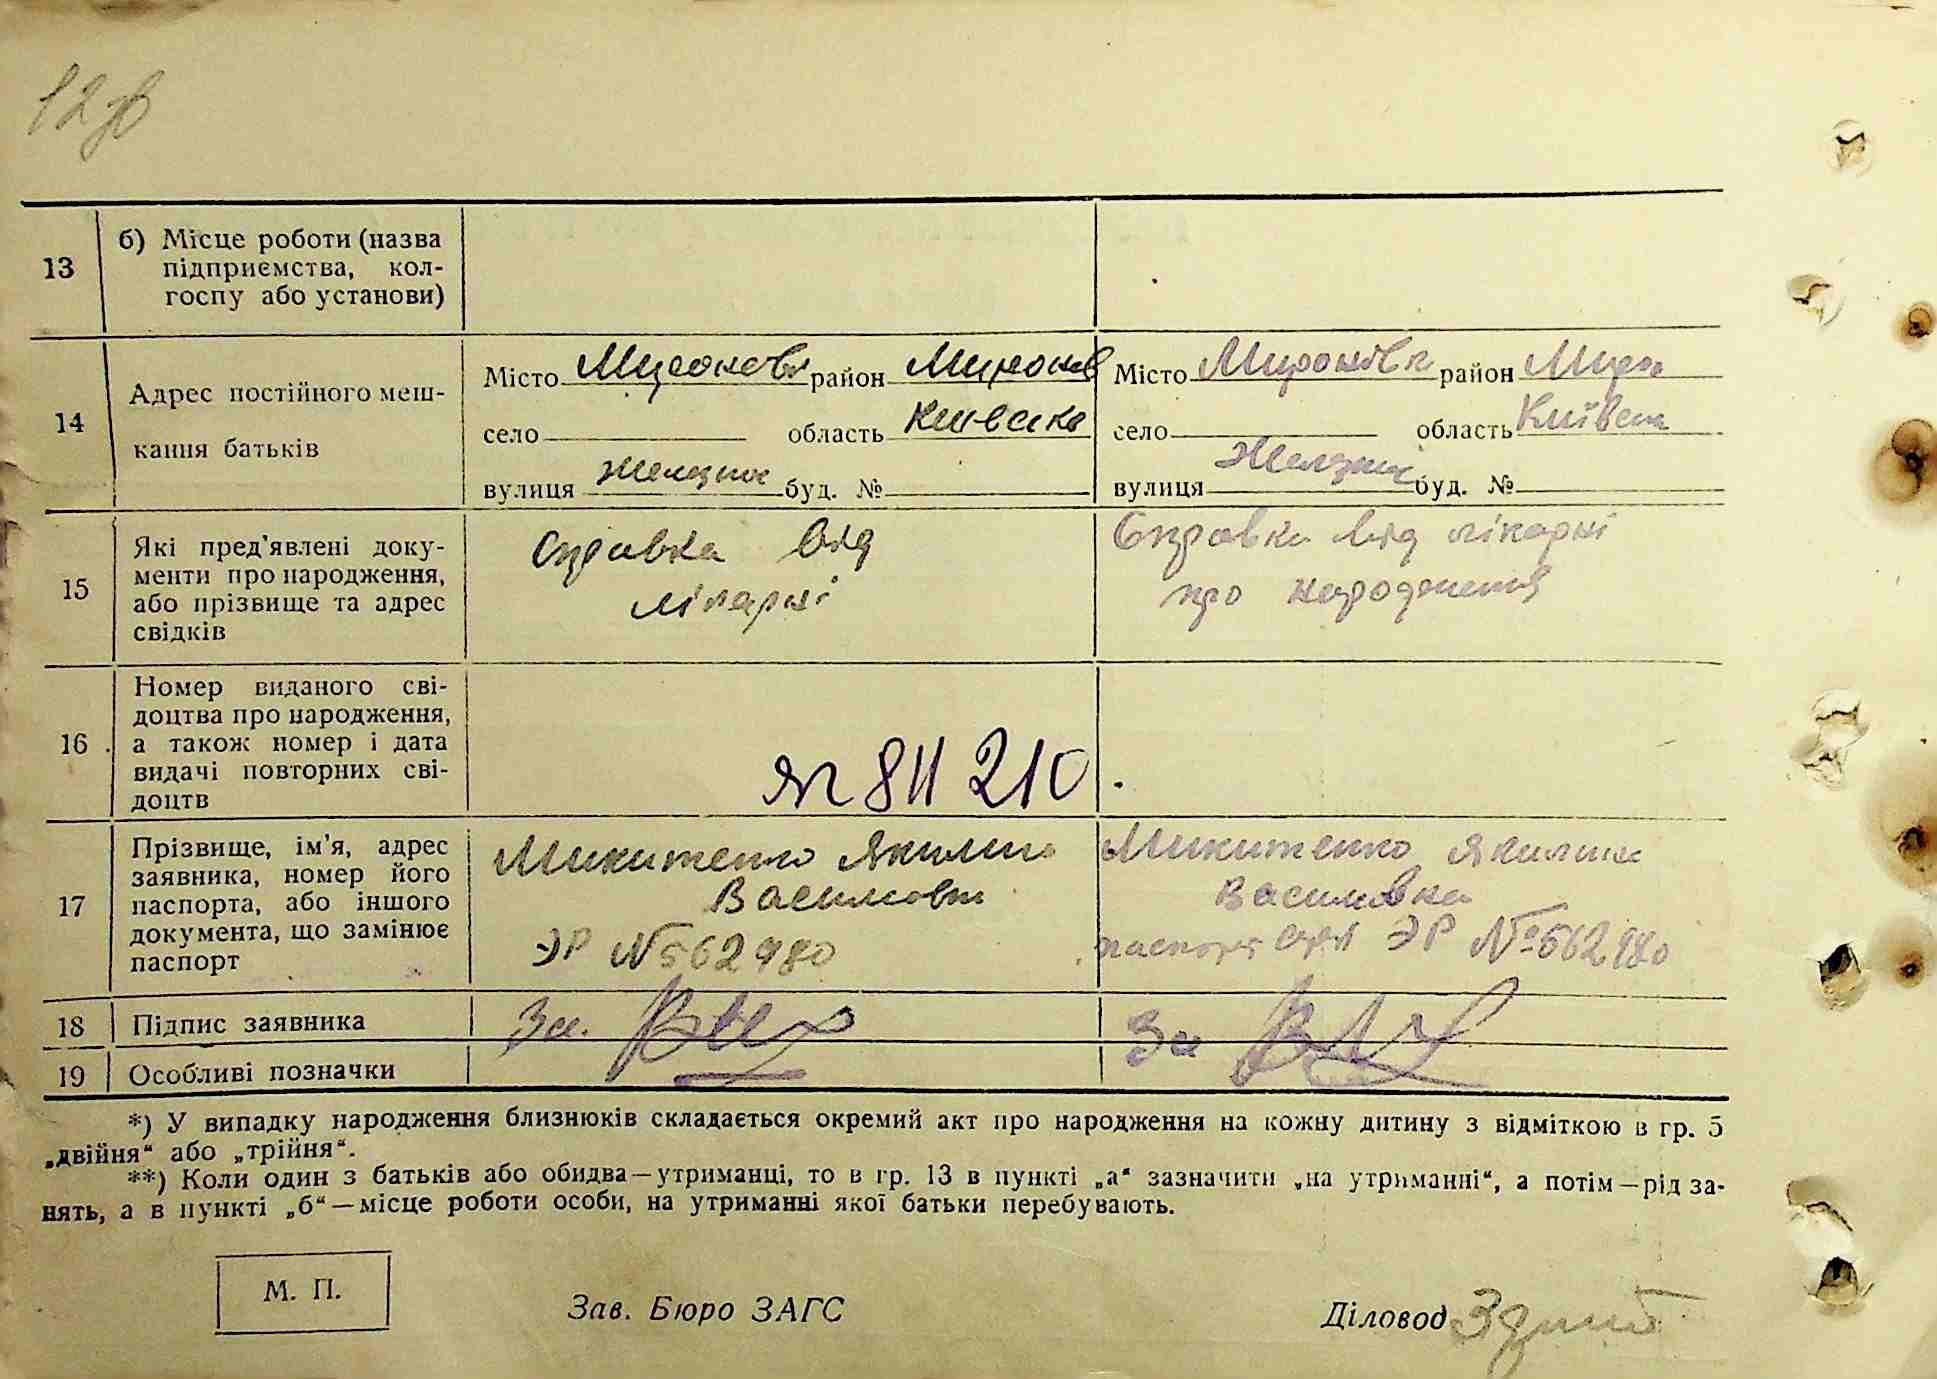 12зв
13 б) Місце роботи (назва
підприємства, кол-
госпу або установи)
14 Адрес постійного меш-
кання батьків
Місто Миронівк район Миронів
село область Київська
вулиця Желєзно буд. №
Місто Миронівк район Миро
село область Київськ
вулиця буд. №
15 Які пред'явлені доку-
менти про народження,
або прізвище та адрес
свідків
Справка від
лікарні
Справка від лікарні
про народження
16 Номер виданого сві-
доцтва про народження,
а також номер і дата
видачі повторних сві-
доцтв
811 210
17 Прізвище, ім'я, адрес
заявника, номер його
паспорта, або іншого
документа, що замінює
паспорт
Микитенко Якилина
Василовн
ЭР №562980
Микитенко Якилина
Василовна
паспорт ЭР №562980
18 Підпис заявника
За.
За
19 Особливі позначки
*) У випадку народження близнюків складається окремий акт про народження на кожну дитину з відміткою в гр. 5
„двійня“ або „трійня“.
**) Коли один з батьків або обидва—утриманці, то в гр. 13 в пункті „а“ зазначити „на утриманні“, а потім—рід за-
нять, а в пункті „б“—місце роботи особи, на утриманні якої батьки перебувають.
М. П.
Зав. Бюро ЗАГС
Діловод